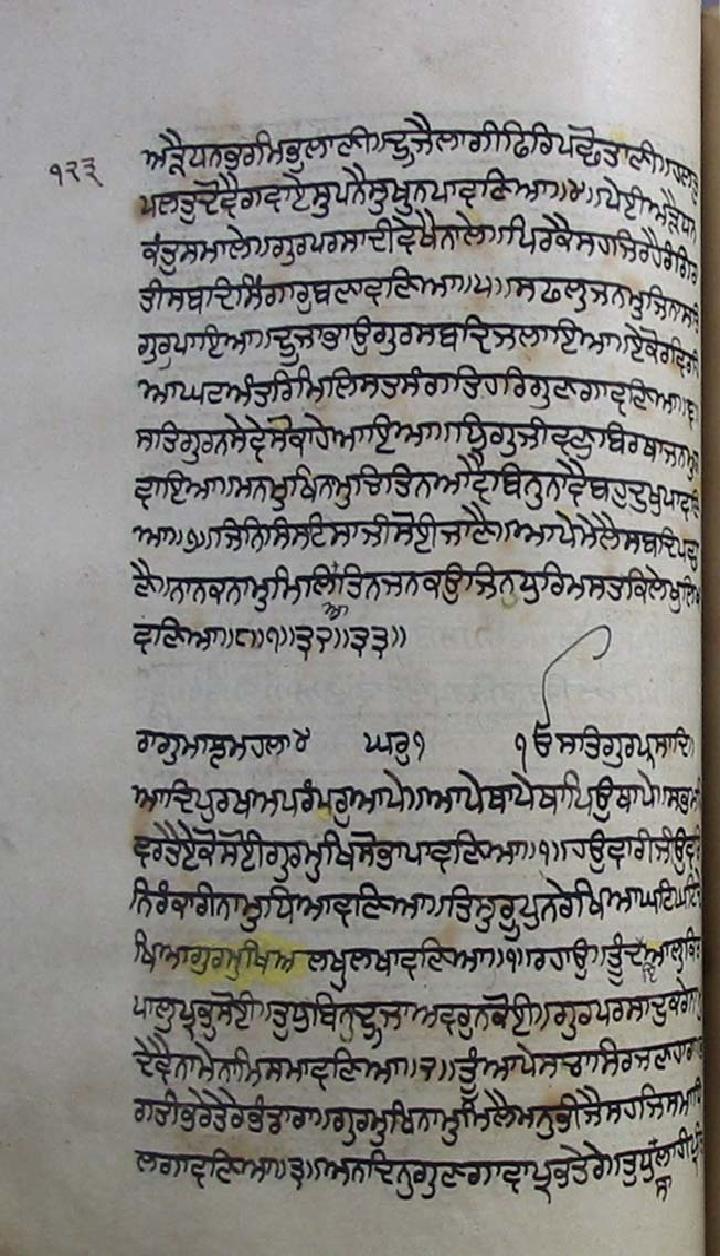 ੧੨੩
ਅੰਞੈਧਨਭਰਮਿਭੁਲਾਣੀ॥ਦੂਜੈਲਾਗੀਫਿਰਿਪਛੋਤਾਣੀ॥ਹਲਤੁ
ਪਲਤੁਦੋਵੈਗਵਾਏਸੁਪਨੈਸੁਖੁਨਪਾਵਣਿਆ॥੪॥ਪੇਈਅੜੈਧਨ
ਕੰਤੁਸਮਾਲੇ॥ਗੁਰਪਰਸਾਦੀਵੇਖੈਨਾਲੇ॥ਪਿਰਕੈਸਹਜਿਰਹੈਰੰਗਿਰਾ
ਤੀਸਬਦਿਸਿੰਗਾਰੁਬਣਾਵਣਿਆ॥੫॥ਸਫਲੁਜਨਮੁਜਿਨਾਸਤਿ
ਗੁਰੁਪਾਇਆ॥ਦੂਜਾਭਾਉਗੁਰਸਬਦਿਜਲਾਇਆ॥ਏਕੋਰਵਿਰਹਿ
ਆਘਟਅੰਤਰਿਮਿਲਿਸਤਸੰਗਤਿਹਰਿਗੁਣਗਾਵਣਿਆ॥੬॥
ਸਤਿਗੁਰਨਸੇਵੇਸੋਕਾਹੇਆਇਆ॥ਧ੍ਰਿਗੁਜੀਵਣੁਬਿਰਥਾਜਨਮੁਗ
ਵਾਇਆ॥ਮਨਮੁਖਿਨਾਮੁਚਿਤਿਨਆਵੈਬਿਨੁਨਾਵੈਬਹੁਦੁਖੁਪਾਵਣਿ
ਆ॥੭॥ਜਿਨਿਸਿਸਟਿਸਾਜੀਸੋਈਜਾਣੈ॥ਆਪੇਮੇਲੈਸਬਦਿਪਛਾ
ਣੈ॥ਨਾਨਕਨਾਮੁਮਿਲਿਆਤਿਨਜਨਕਉਜਿਨਧੁਰਿਮਸਤਕਿਲੇਖੁਲਿਖਾ
ਵਣਿਆ॥੮॥੧॥੩੨॥੩੩॥
ਰਾਗੁਮਾਝਮਹਲਾ੪ ਘਰੁ੧ ੴਸਤਿਗੁਰਪ੍ਰਸਾਦਿ॥
ਆਦਿਪੁਰਖੁਅਪਰੰਪਰੁਆਪੇ॥ਆਪੇਥਾਪੇਥਾਪਿਉਥਾਪੇ॥ਸਭਮਹਿ
ਵਰਤੈਏਕੋਸੋਈਗੁਰਮੁਖਿਸੋਭਾਪਾਵਣਿਆ॥੧॥ਹਉਵਾਰੀਜੀਉਵਾਰੀ
ਨਿਰੰਕਾਰੀਨਾਮੁਧਿਆਵਣਿਆ॥ਤਿਸੁਰੂਪੁਨਰੇਖਿਆਘਟਿਘਟਿਦੇ
ਖਿਆਗੁਰਮੁਖਿਅਲਖੁਲਖਾਵਣਿਆ॥੧॥ਰਹਾਉ॥ਤੂੰਦਇਆਲੁਕਿਰ
ਪਾਲੁਪ੍ਰਭੁਸੋਈ॥ਤੁਧੁਬਿਨੁਦੂਜਾਅਵਰੁਨਕੋਈ॥ਗੁਰਪਰਸਾਦੁਕਰੇਨਾਮੁ
ਦੇਵੈਨਾਮੇਨਾਮਿਸਮਾਵਣਿਆ॥੨॥ਤੂੰਆਪੇਸਚਾਸਿਰਜਣਹਾਰਾ॥ਭ
ਗਤੀਭਰੇਤੇਰੇਭੰਡਾਰਾ॥ਗੁਰਮੁਖਿਨਾਮੁਮਿਲੈਮਨੁਭੀਜੈਸਹਜਿਸਮਾਧਿ
ਲਗਾਵਣਿਆ॥੩॥ਅਨਦਿਨੁਗੁਣਗਾਵਾਪ੍ਰਭਤੇਰੇ॥ਤੁਧੁਸਾਲਾਹੀਪ੍ਰੀ